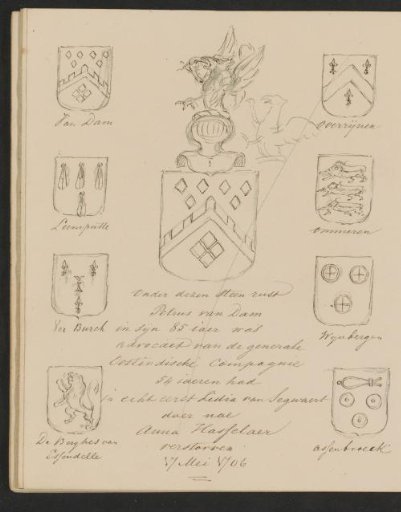 Van Dam
Overrynen
Lumputte
Ommeren
Ver Burch
Wynbergen
De Berghes van
Assenbroeck
onder dezen Steen rust
Petrus van Dam
in syn 85 iaer was
advocaet van de generale
Oostindische Compagnie
54 iaeren had
in echt eerst Lidia van Segwaert
daer nae
Anna Hasselaer
verstorven
17 Mei 1706